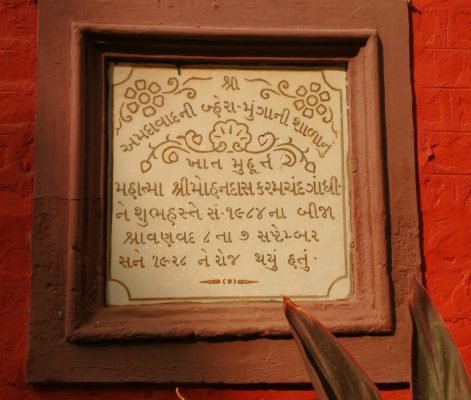 શ્રી
અમદાવાદની બ્હેરા-મુંગાની શાળાનું
ખાત મુહૂર્ત
મહાત્મા શ્રીમોહનદાસ કરમચંદ ગાંધી
ને શુભહસ્તે સં·૧૯૮૪ના બીજા
શ્રાવણવદ ૮ તા ૭ સપ્ટેમ્બર
સને ૧૯૨૮ ને રોજ થયું હતું·